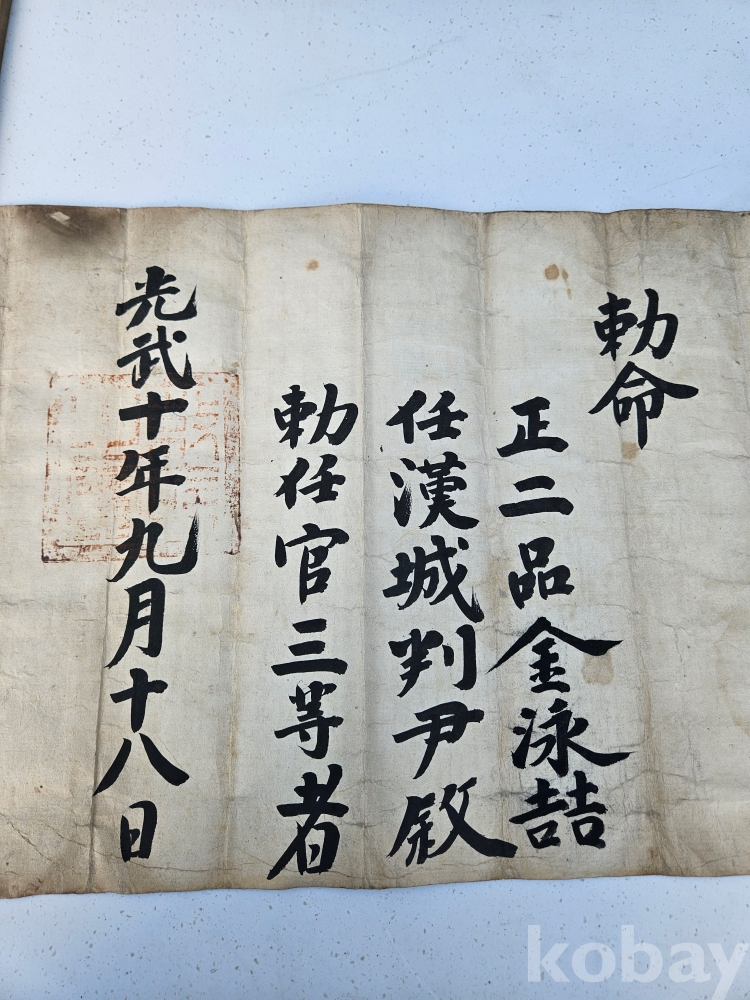 勅命
正二品金泳喆
任漢城判尹敘
勅任官三等者
光武十年九月十八日
kobay